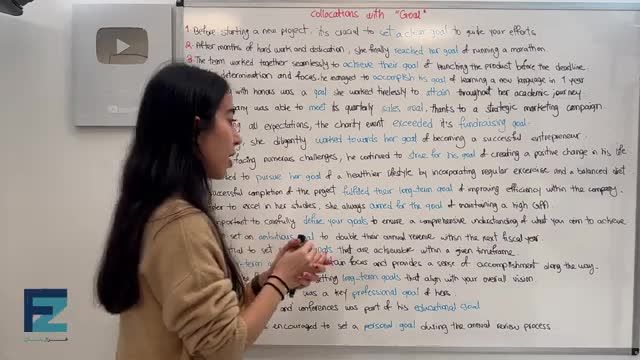 Collocations with "Goal"
1. Before starting a new project, it's crucial to set a clear goal to guide your efforts
2. After months of hard work and dedication, she finally reached her goal of running a marathon.
3. The team worked together seamlessly to achieve their goal of launching the product before the deadline.
determination and focus, he managed to accomplish his goal of learning a new language in 1 year
with honours was a goal she worked tirelessly to attain throughout her academic journey.
any was able to meet its quarterly sales goal, thanks to a strategic marketing campaign.
all expectations, the charity event exceeded its fundraising goal.
she diligently worked towards her goal of becoming a successful entrepreneur.
facing numerous challenges, he continued to strive for his goal of creating a positive change in his life
ded to pursue her goal of a healthier lifestyle by incorporating regular excercise and a balanced diet
uccessful completion of the project fulfilled their long-term goal of improving efficiency within the company.
to excel in her studies, she always aimed for the goal of maintaining a high GPA
portant to carefully define your goals to ensure a comprehensive understanding of what you aim to achieve
set an ambitious goal to double their annual revenue within the next fiscal year
tial to set goals that are achievable within a given timeframe
-term focus and provides a sense of accomplishment along the way.
tting long-term goals that align with your overall vision.
was a key professional goal of hers
and conferences was part of his educational goal
encouraged to set a personal goal during the annual review process
EZ